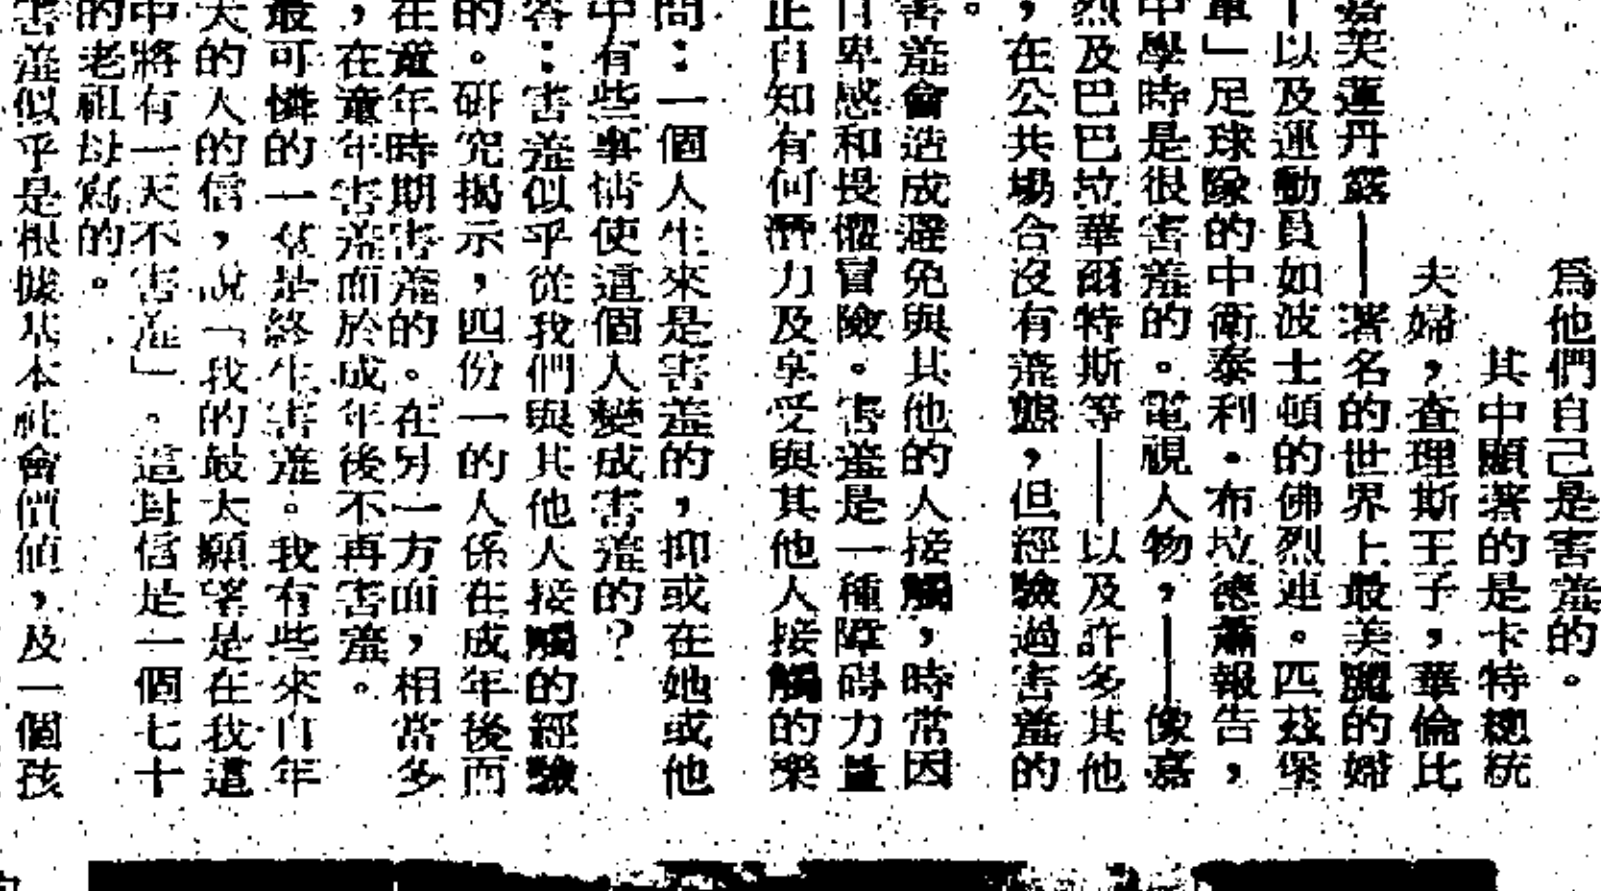 爲他們自己是害羞的。
其中顯著的是卡特總統
夫婦，查理斯王子，華倫比
嘉芙蓮丹露——著名的世界上最美麗的婦
以及運動員如波士頓的佛烈連。匹茲堡
軍」足球隊的中衛泰利．布垃德蕭報告，
中學時是很害羞的。電視人物，——像嘉
烈及巴巴垃華爾特斯等——以及許多其他
，在公共場合沒有羞態，但經驗過害羞的
。
害羞會造成避免與其他的人接觸，時常因
自卑感和畏懼冒險。害羞是一種障碍力量
正自知有何潛力及享受與其他人接觸的樂
問：一個人生來是害羞的，抑或在她或他
中有些事情使這個人變成害羞的？
答：害羞似乎從我們與其他人接觸的經驗
的。研究揭示，四份一的人係在成年後而
在童年時期害羞的。在另一方面，相當多
，在童年害羞而於成年後不再害羞。
最可憐的一羣是終生害羞。我有些來自年
大的人的信，說「我的最大願望是在我這
中將有一天不害羞」。這封信是一個七十
的老祖母寫的。
害羞似乎是根據基本社會價值，及一個孩